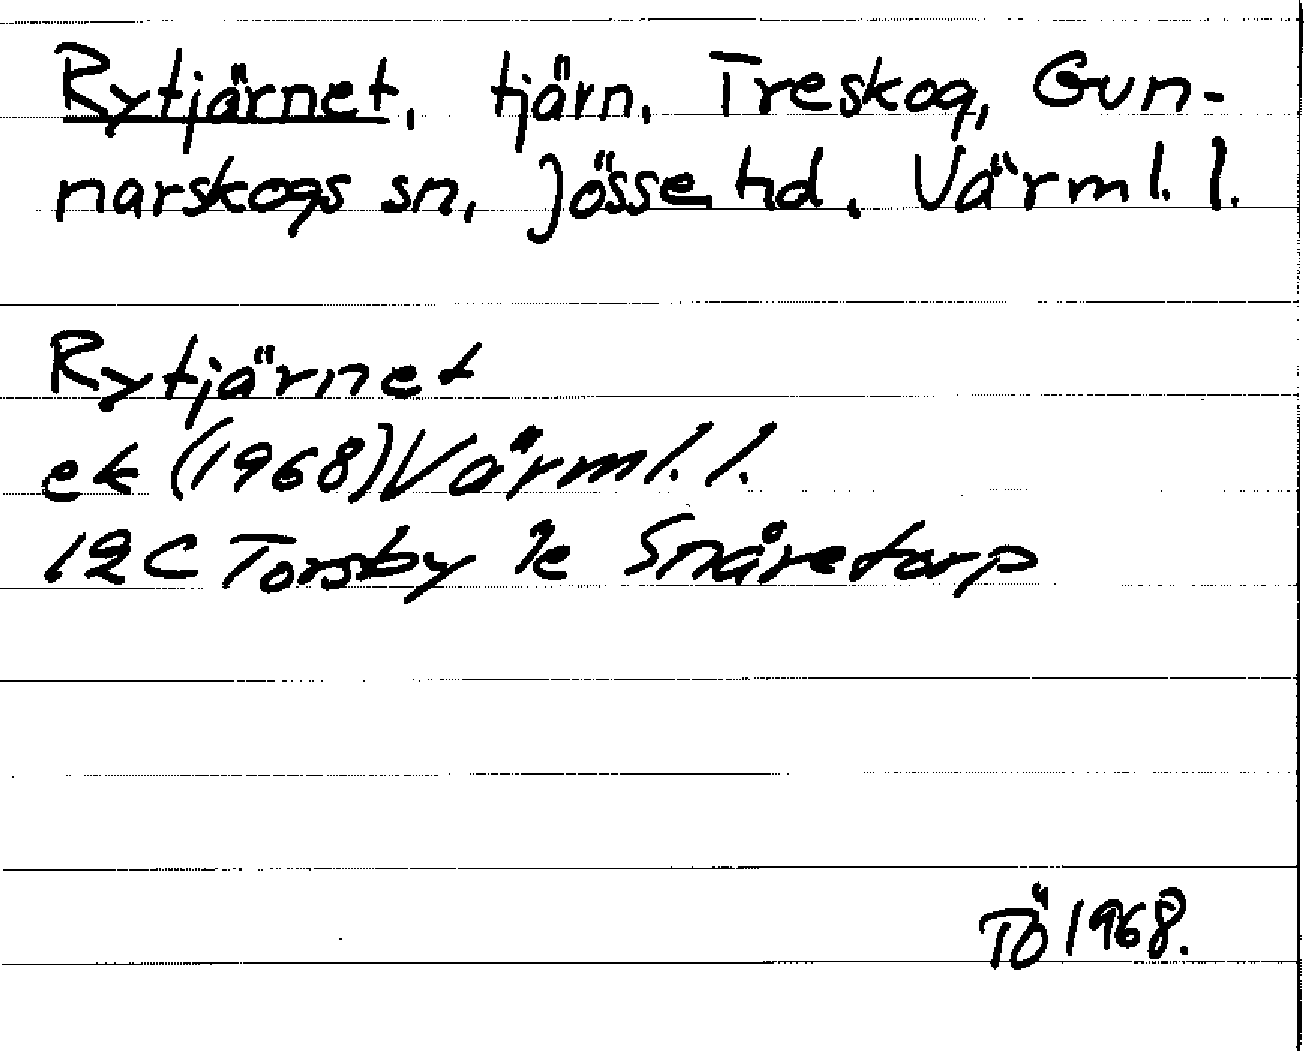 Rytjärnet, tjärn, Treskog, Gun-
narskogs sn, Jösse hd, Värml. l.
Rytjärnet
ek (1968) Värml. l.
12C Torsby 1e Snåretorp
TÖ 1968.